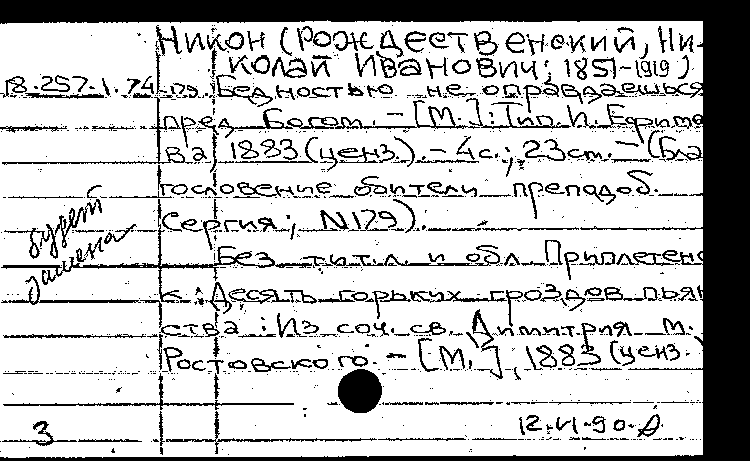 Никон (Рождественский, Ни-
колай Иванович; 1851-1919)
18.257.1.74-179. Бедностью не оправдаешься
пред Богом. - [М.]: Тип. И. Ефимо
ва, 1883 (ценз.). - 4 с.; 23 см. - (Бла
гословение обители преподоб.
Сергия; N179).
Без тит. л. и обл. Приплетено
к: Десять горьких гроздов пьян
ства: Из соч. св. Димитрия м.
Ростовского. - [М.], 1883 (ценз.)
будет
замена
3
12.VI.90.